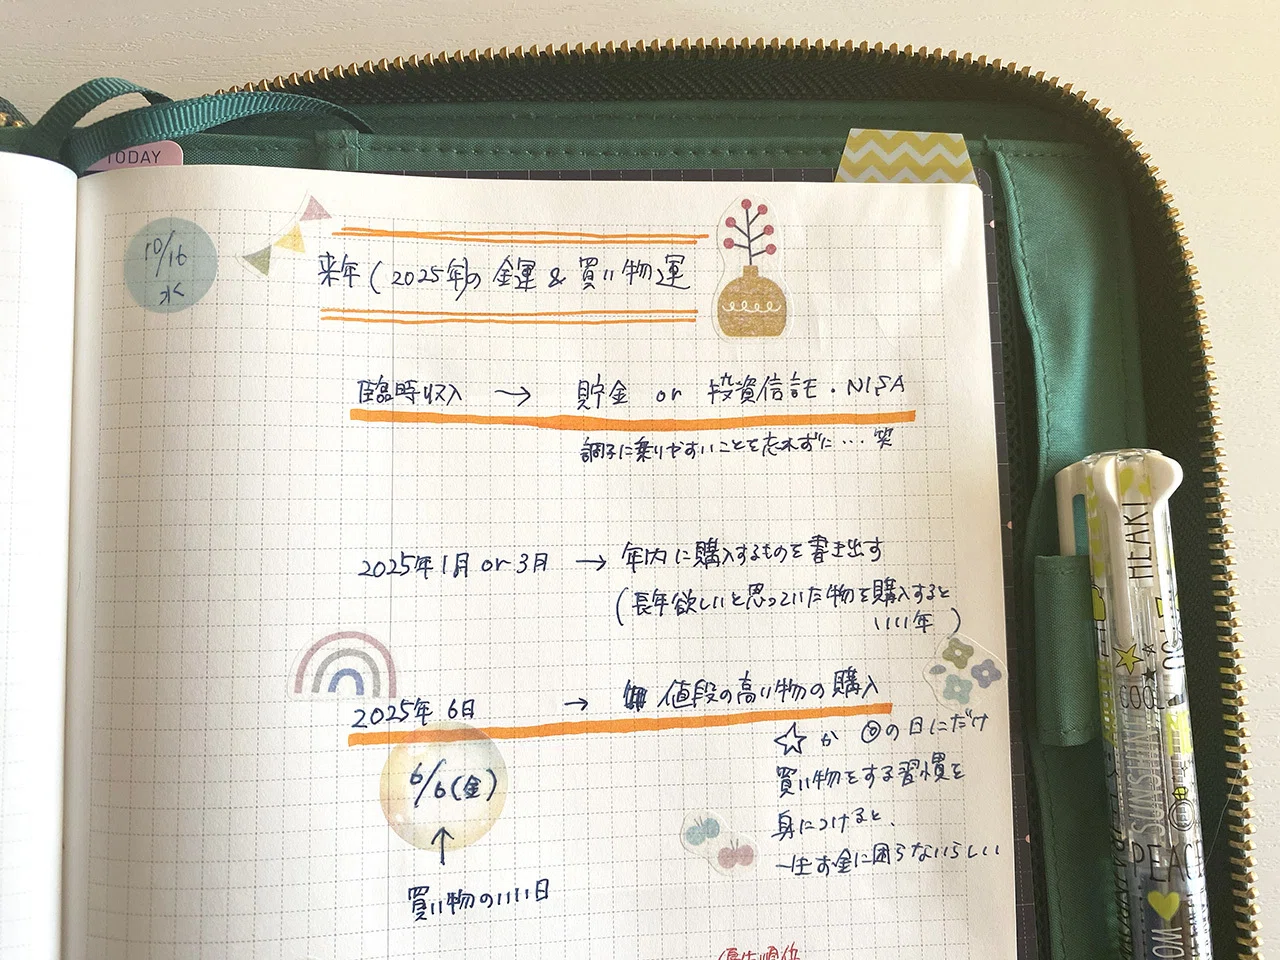 TODAY
10/16
水
来年(2025年)の金運&買い物運
臨時収入 → 貯金 or 投資信託・NISA
調子に乗りやすいことを忘れずに…笑
2025年1月 or 3月 → 年内に購入するものを書き出す
(長年欲しいと思っていた物を購入すると
いい年)
2025年 6月 → 値段の高い物の購入
☆か◎の日にだけ
買い物をする習慣を
身につけると、
一生お金に困らないらしい
6/6(金)
↑
買い物のいい日
優先順位
HEAKI
COOL
PEACE
WO